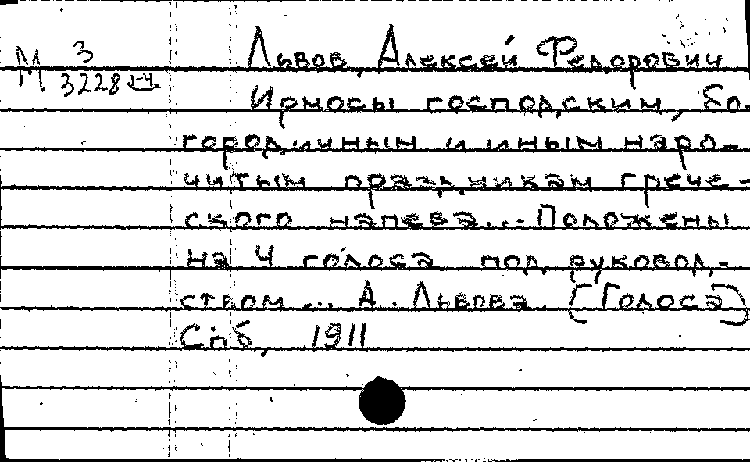 М 3
3228
Львов, Алексей Федорович
Ирмосы господским, бо-
городичным и иным наро-
читым праздникам грече-
ского напева... Положены
на 4 голоса под руковод-
ством ... А. Львова. (Голоса)
Спб, 1911